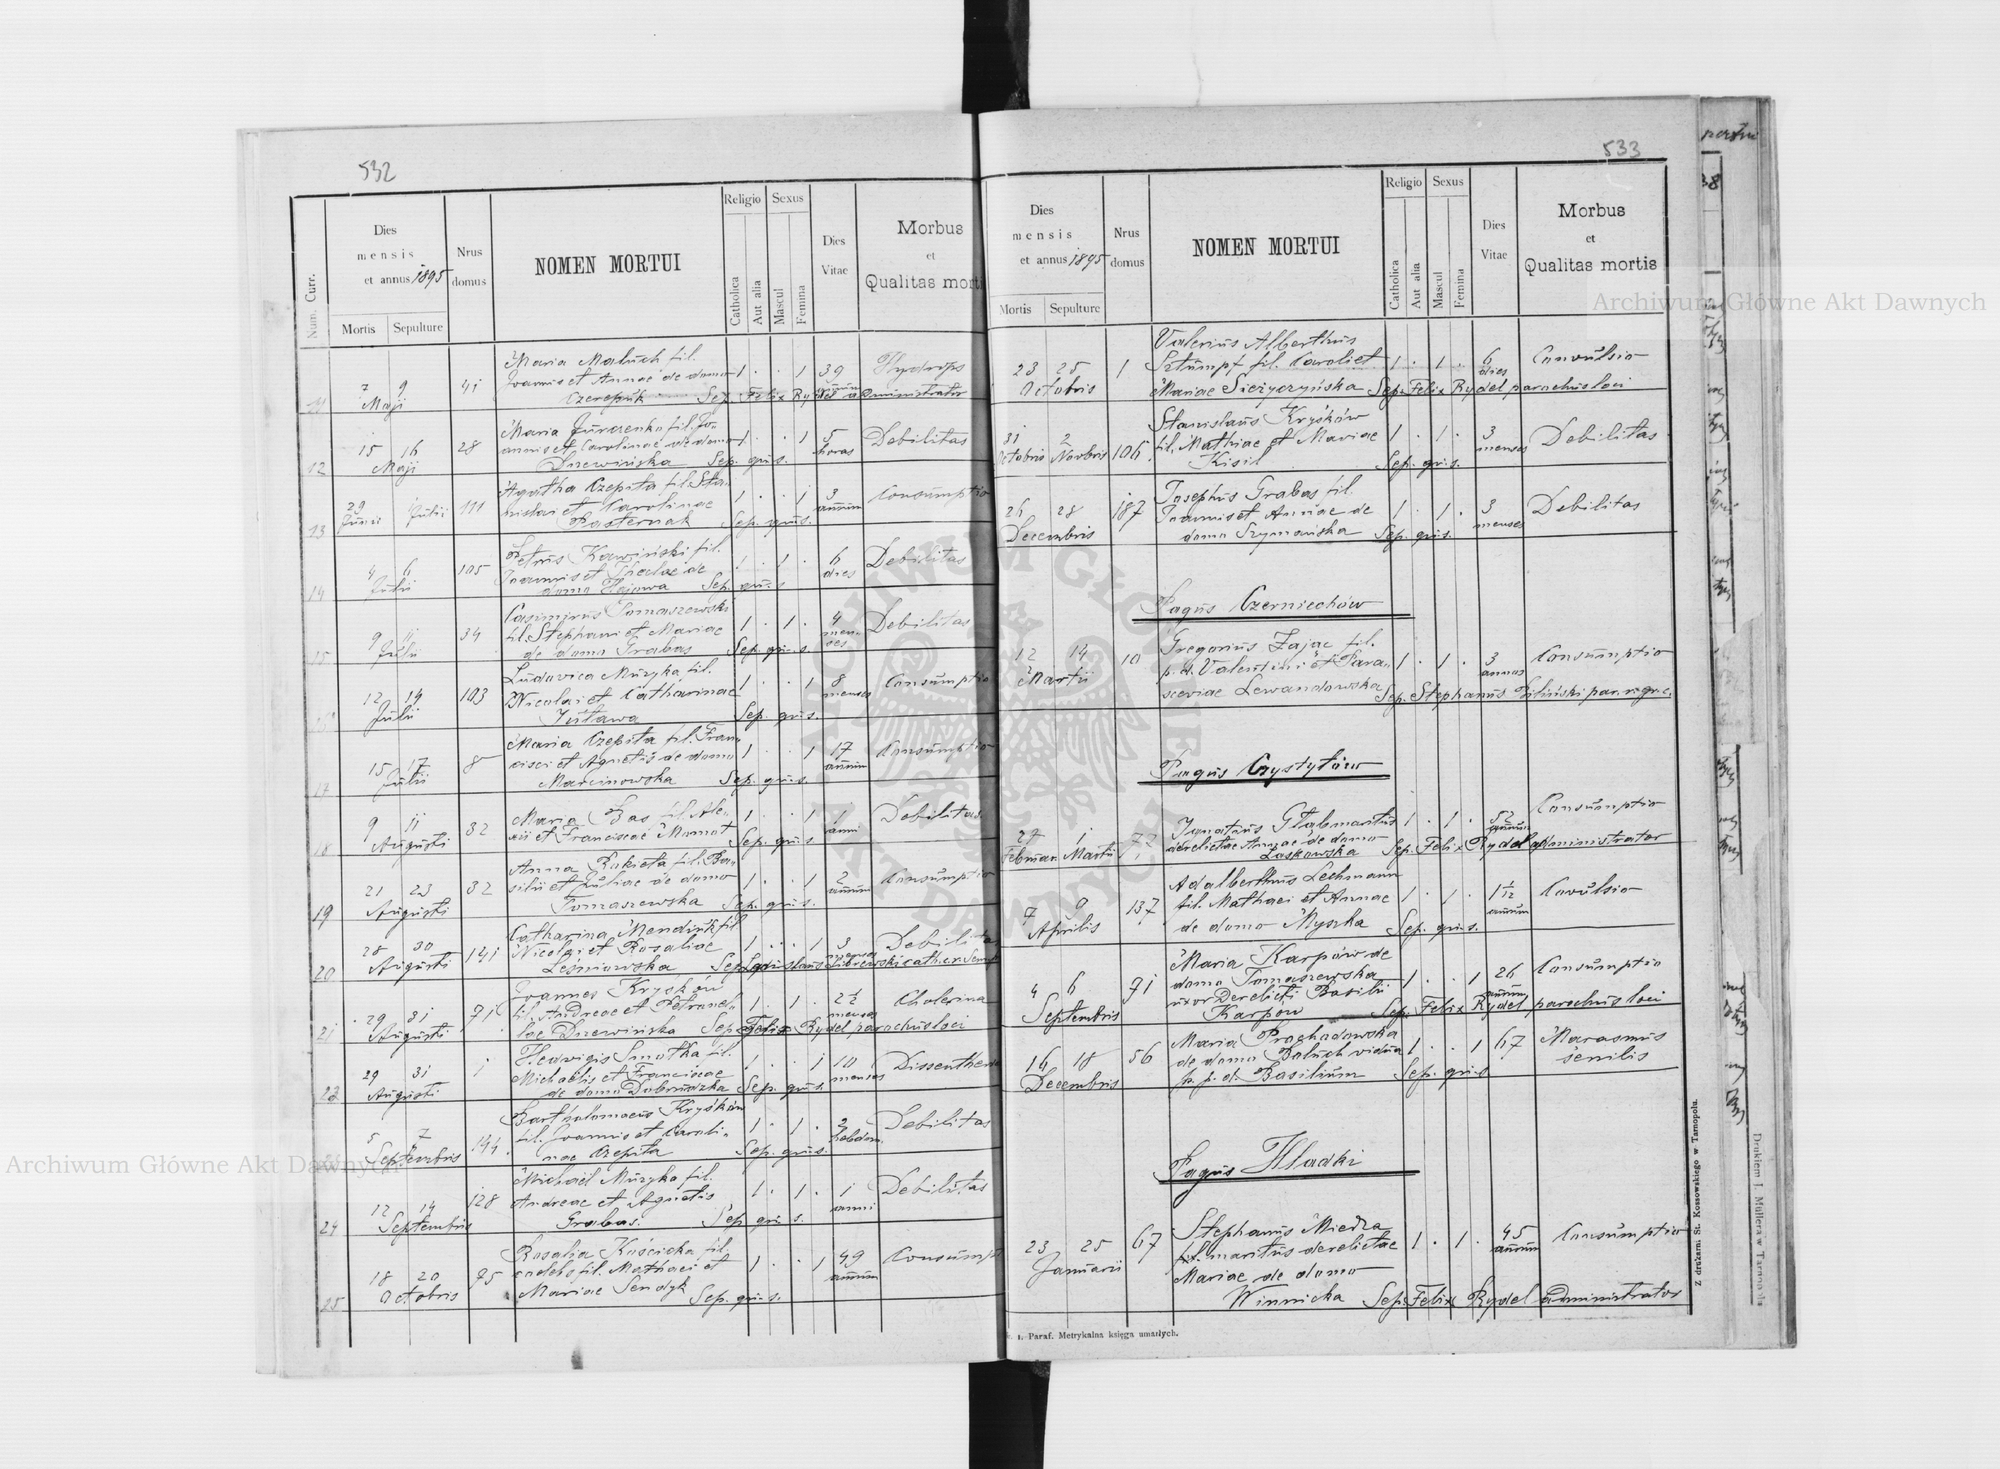 532
Num. Curr.
Dies
mensis
et annus 1895
Mortis
Sepulture
Nrus
domus
NOMEN MORTUI
Religio
Catholica
Aut alia
Sexus
Mascul
Femina
Dies
Vitae
Morbus
et
Qualitas mortis
Maria Maluch fil.
11 7 9 41 Joannis et Annae de domo 1 . . 1 39 Hydrops
Maji Czerepuk Sep. Felix Rydel administrator
Maria Jurczenko fil. Jo-
12 15 16 28 annis et Carolinae de domo 1 . . 1 5 horas Debilitas
Maji Dzewińska Sep. qui s.
Agatha Czepita fil. Sta-
13 29 Junii Julii 111 nislai et Carolinae 1 . . 1 3 annum Consumptio
Pasternak Sep. qui s.
Petrus Kawiński fil.
14 4 6 105 Joannis et Theclae de 1 . 1 . 6 dies Debilitas
Julii domo Hojowa Sep. qui s.
Casimirus Tomaszewski
15 9 11 34 fil. Stephani et Mariae 1 . 1 . 4 menses Debilitas
Julii de domo Grabas Sep. qui s.
Ludovica Muzyka fil.
16 12 14 103 Nicolai et Catharinae 1 . . 1 8 menses Consumptio
Julii Sep. qui s.
Maria Czepita fil. Fran-
17 15 17 8 cisci et Agnetis de domo 1 . . 1 17 annum Consumptio
Julii Marcinowska Sep. qui s.
18 9 11 32 Maria Bas fil. Ale- 1 . . 1 1 anni Debilitas
Augusti xii et Franciscae Mamot Sep. qui s.
Anna Rokieta fil. Ba-
19 21 23 32 silii et Juliae de domo 1 . . 1 2 annum Consumptio
Augusti Tomaszewska Sep. qui s.
Catharina Mendiuk fil.
20 28 30 141 Nicolai et Rosaliae 1 . . 1 3 menses Debilitas
Augusti Leśniowska Sep.
Joannes Kryśków
21 29 31 91 fil. Andreae et Petronel- 1 . 1 . 2½ menses Cholerina
Augusti lae Dzewińska Sep. Felix Rydel parochus loci
Hedvigis Smotka fil.
22 29 31 1 Michaelis et Franciscae 1 . . 1 10 menses Dissentheria
Augusti de domo Dobrudzka Sep. qui s.
Bartholomaeus Kryśków
5 7 144 fil. Joannis et Caroli- 1 . 1 . 2 hebdom. Debilitas
Septembris nae Czepita Sep. qui s.
Michael Muzyka fil.
24 12 14 128 Andreae et Agnetis 1 . 1 . 1 anni Debilitas
Septembris Grabas. Sep. qui s.
Rosalia Kościcka fil.
25 18 20 95 caelebs fil. Mathaei et 1 . . 1 49 annum Consumptio
Octobris Mariae Sendyk Sep. qui s.
533
Dies
mensis
et annus 1895
Mortis
Sepulture
Nrus
domus
NOMEN MORTUI
Religio
Catholica
Aut alia
Sexus
Mascul
Femina
Dies
Vitae
Morbus
et
Qualitas mortis
Valerius Alberthus
23 25 1 Sztumpf fil. Caroli et 1 . 1 . 6 dies Convulsio
Octobris Mariae Sieżyczyńska Sep. Felix Rydel parochus loci
Stanislaus Kryśków
31 Octobris 2 Novbris 106 fil. Mathiae et Mariae 1 . 1 . 3 menses Debilitas
Kisil Sep. qui s.
Josephus Grabas fil.
26 28 187 Joannis et Annae de 1 . 1 . 3 menses Debilitas
Decembris domo Szymańska Sep. qui s.
Pagus Czerniechów
Gregorius Zając fil.
12 14 10 p. d. Valentini et Para- 1 . 1 . 3 annos Consumptio
Martii sceviae Lewandowska Sep. Stephanus Biliński par. r. gr. c.
Pagus Czystyłów
27 Februar. 1 Martii 72 Ignatius Głąb maritus 1 . 1 . 52 annum Consumptio
derelictae Annae de domo
Laskowska Sep. Felix Rydel administrator
Adalberthus Lechmann
7 9 137 fil. Mathaei et Annae 1 . 1 . 1 1/12 annum Covulsio
Aprilis de domo Myszka Sep. qui s.
Maria Karpów de
4 6 91 domo Tomaszewska 1 . . 1 26 annum Consumptio
Septembris uxor Derelicti Basilii
Karpów Sep. Felix Rydel parochus loci
Maria Prochodowska
16 18 56 de domo Baluch vidua 1 . . 1 67 Marasmus senilis
Decembris p. p. d. Basilium Sep. qui s.
Pagus Hladki
Stephanus Miedza
23 25 67 fil. maritus derelictae 1 . 1 . 45 annum Consumptio
Januarii Mariae de domo
Winnicka Sep. Felix Rydel administrator
1. Paraf. Metrykalna księga umarłych.
Z drukarni St. Kossowskiego w Tarnopolu.
Drukiem J. Müllera w Tarnopolu
Archiwum Główne Akt Dawnych
Archiwum Główne Akt Dawnych
ARCHIWUM GŁÓWNE AKT DAWNYCH